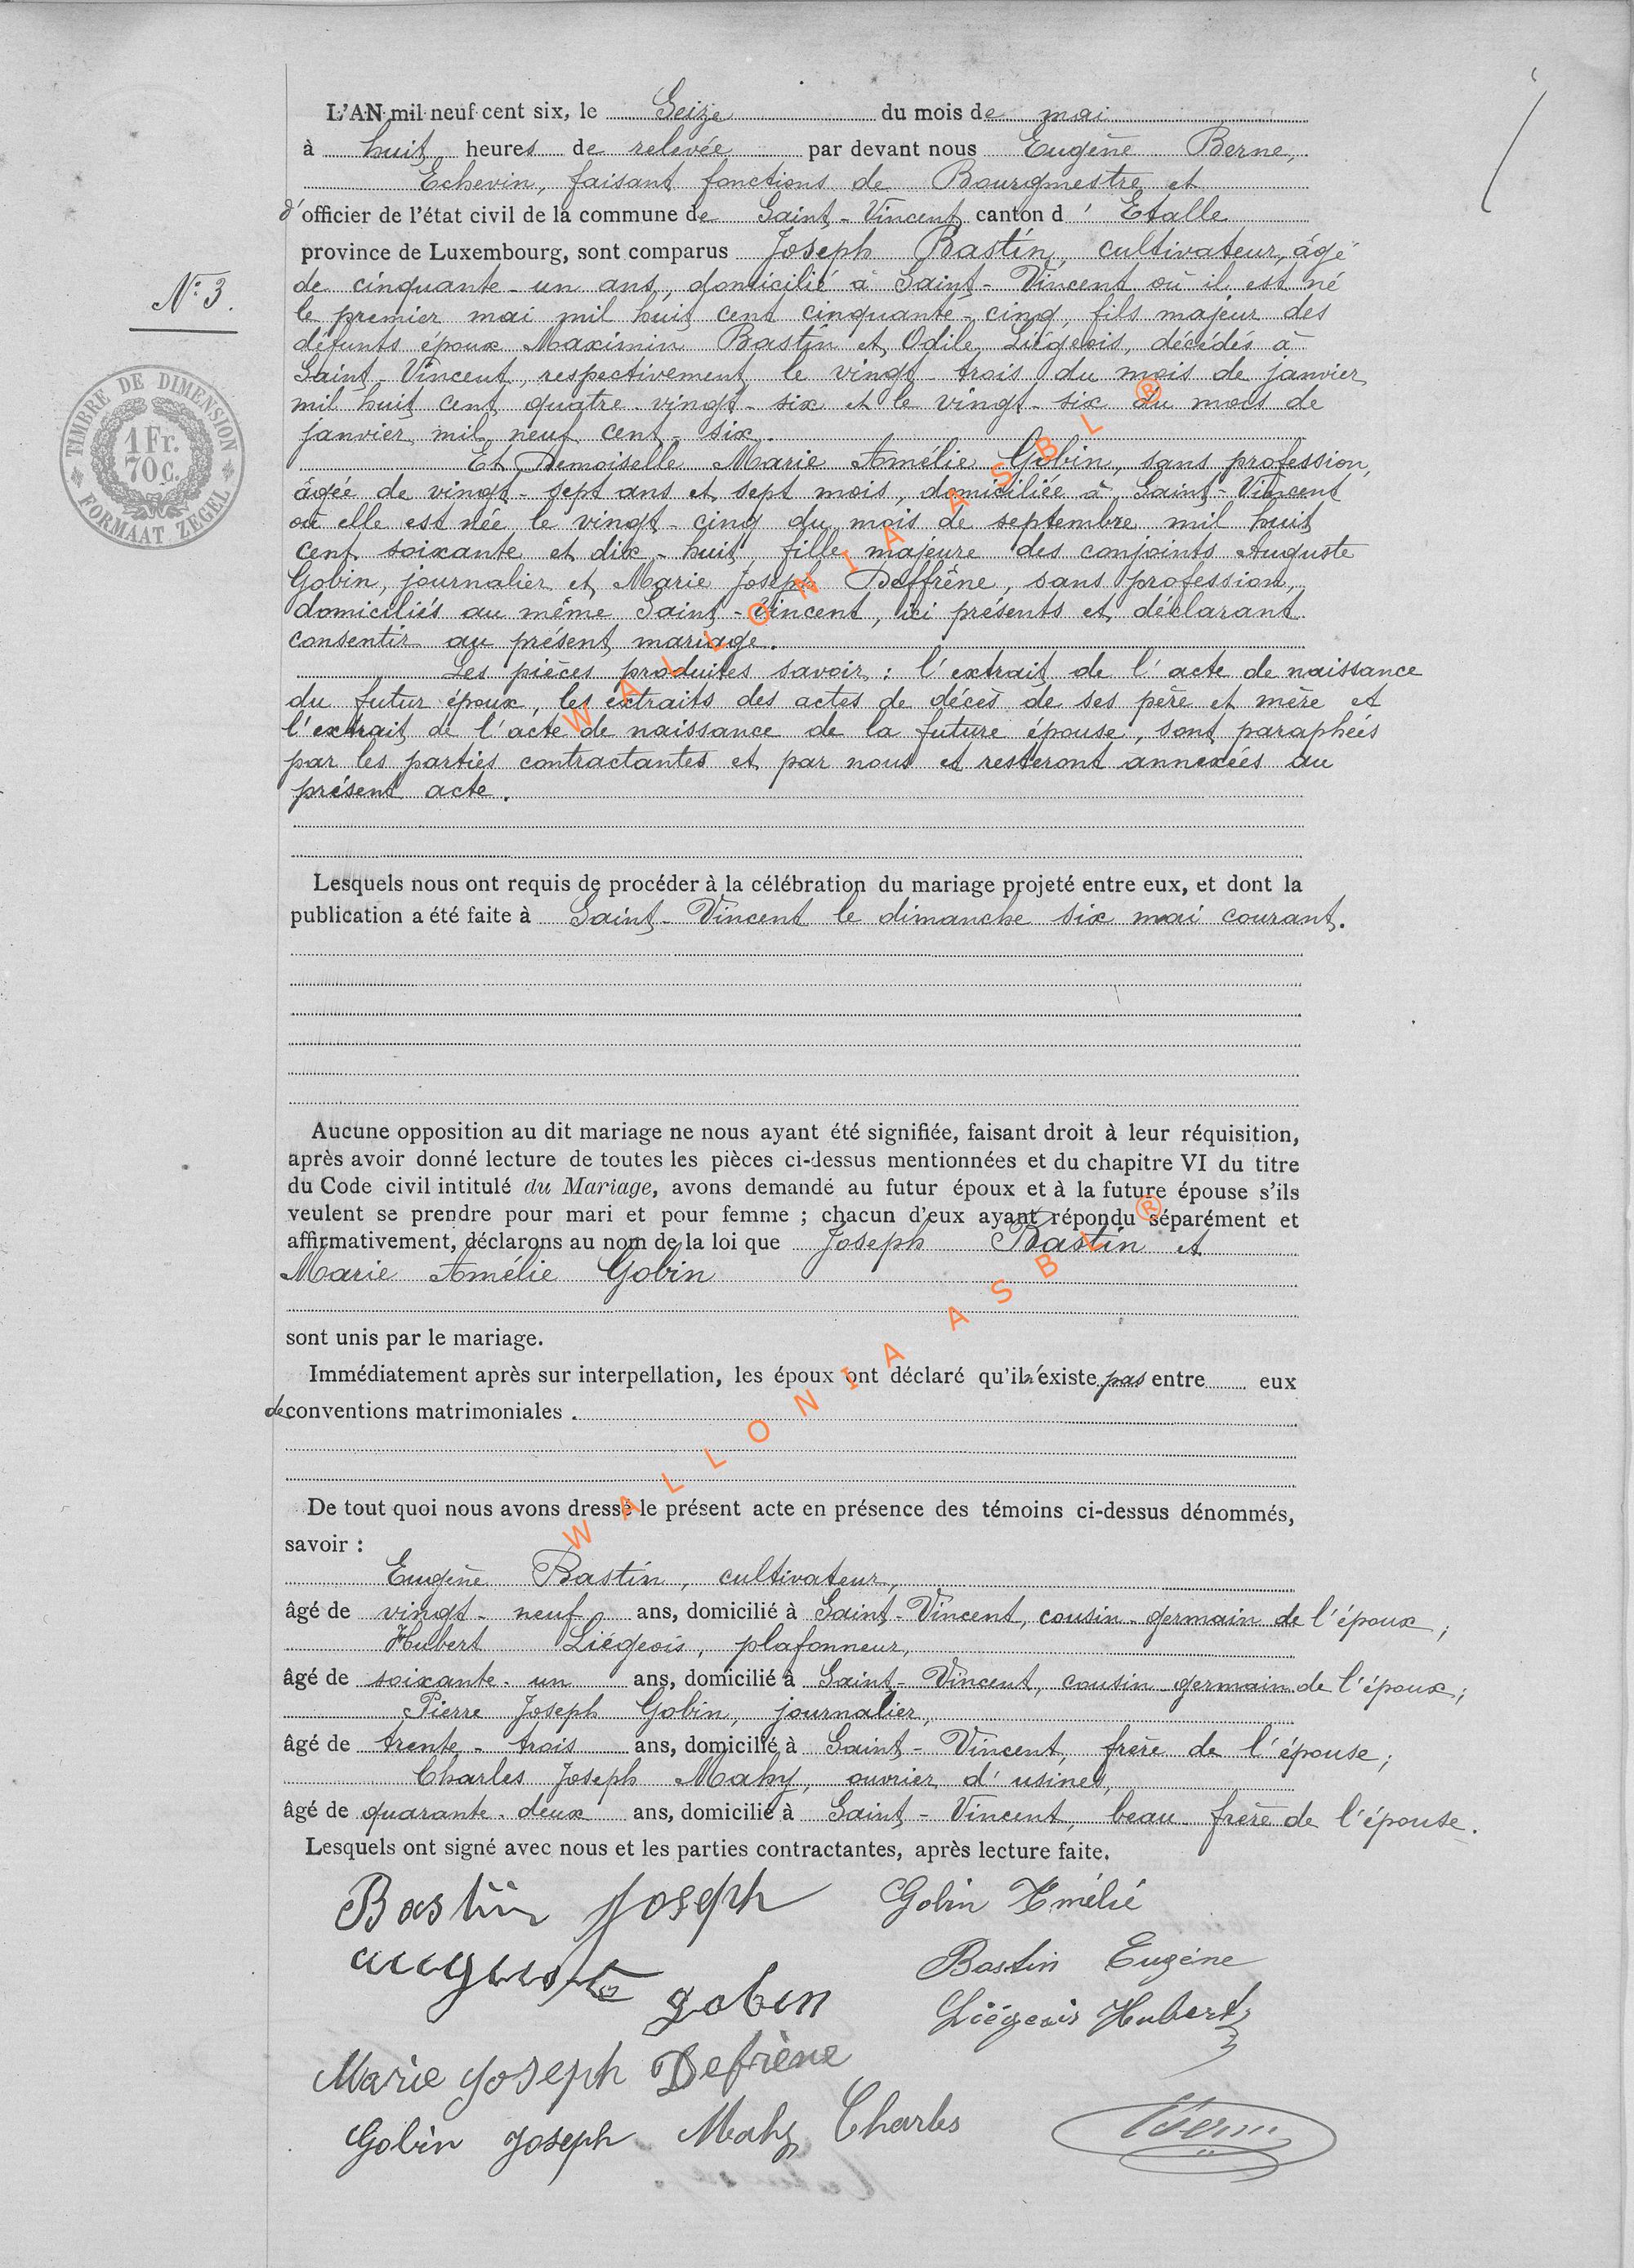 L'AN mil neuf cent six, le Seize du mois de mai
à huit heures de relevée par devant nous Eugène Berne,
Echevin, faisant fonctions de Bourgmestre et
d'officier de l'état civil de la commune de Saint-Vincent canton d'Etalle
province de Luxembourg, sont comparus Joseph Bastin, cultivateur, âgé
N° 3.
de cinquante-un ans, domicilié à Saint-Vincent où il est né
le premier mai mil huit cent cinquante-cinq, fils majeur des
défunts époux Maximin Bastin et Odile Liégeois, décédés à
Saint-Vincent, respectivement le vingt-trois du mois de janvier
mil huit cent quatre-vingt-six et le vingt-six du mois de
janvier mil neuf cent-six.
TIMBRE DE DIMENSION
1 Fr.
70 c.
FORMAAT ZEGEL
Et Demoiselle Marie Amélie Gobin, sans profession,
âgée de vingt-sept ans et sept mois, domiciliée à Saint-Vincent
où elle est née le vingt-cinq du mois de septembre mil huit
cent soixante et dix-huit, fille majeure des conjoints Auguste
Gobin, journalier et Marie Joseph Deffrêne, sans profession,
domiciliés au même Saint-Vincent, ici présents et déclarant
consentir au présent mariage.
Les pièces produites savoir : l'extrait de l'acte de naissance
du futur époux, les extraits des actes de décès de ses père et mère et
l'extrait de l'acte de naissance de la future épouse, sont paraphées
par les parties contractantes et par nous et resteront annexées au
présent acte.
WALLONIA ASBL ®
Lesquels nous ont requis de procéder à la célébration du mariage projeté entre eux, et dont la
publication a été faite à Saint-Vincent le dimanche six mai courant.
Aucune opposition au dit mariage ne nous ayant été signifiée, faisant droit à leur réquisition,
après avoir donné lecture de toutes les pièces ci-dessus mentionnées et du chapitre VI du titre
du Code civil intitulé du Mariage, avons demandé au futur époux et à la future épouse s'ils
veulent se prendre pour mari et pour femme ; chacun d'eux ayant répondu séparément et
affirmativement, déclarons au nom de la loi que Joseph Bastin et
Marie Amélie Gobin
sont unis par le mariage.
Immédiatement après sur interpellation, les époux ont déclaré qu'il n'existe pas entre eux
de conventions matrimoniales.
WALLONIA ASBL ®
De tout quoi nous avons dressé le présent acte en présence des témoins ci-dessus dénommés,
savoir :
Eugène Bastin, cultivateur,
âgé de vingt-neuf ans, domicilié à Saint-Vincent, cousin-germain de l'époux ;
Hubert Liégeois, plafonneur,
âgé de soixante-un ans, domicilié à Saint-Vincent, cousin germain de l'époux ;
Pierre Joseph Gobin, journalier,
âgé de trente-trois ans, domicilié à Saint-Vincent, frère de l'épouse ;
Charles Joseph Mahy, ouvrier d'usines,
âgé de quarante-deux ans, domicilié à Saint-Vincent, beau-frère de l'épouse.
Lesquels ont signé avec nous et les parties contractantes, après lecture faite.
Bastin Joseph Gobin Amélie
auguste gobin Bastin Eugène
Liégeois Hubert
Marie Joseph Defrène
Gobin Joseph Mahy Charles Berne